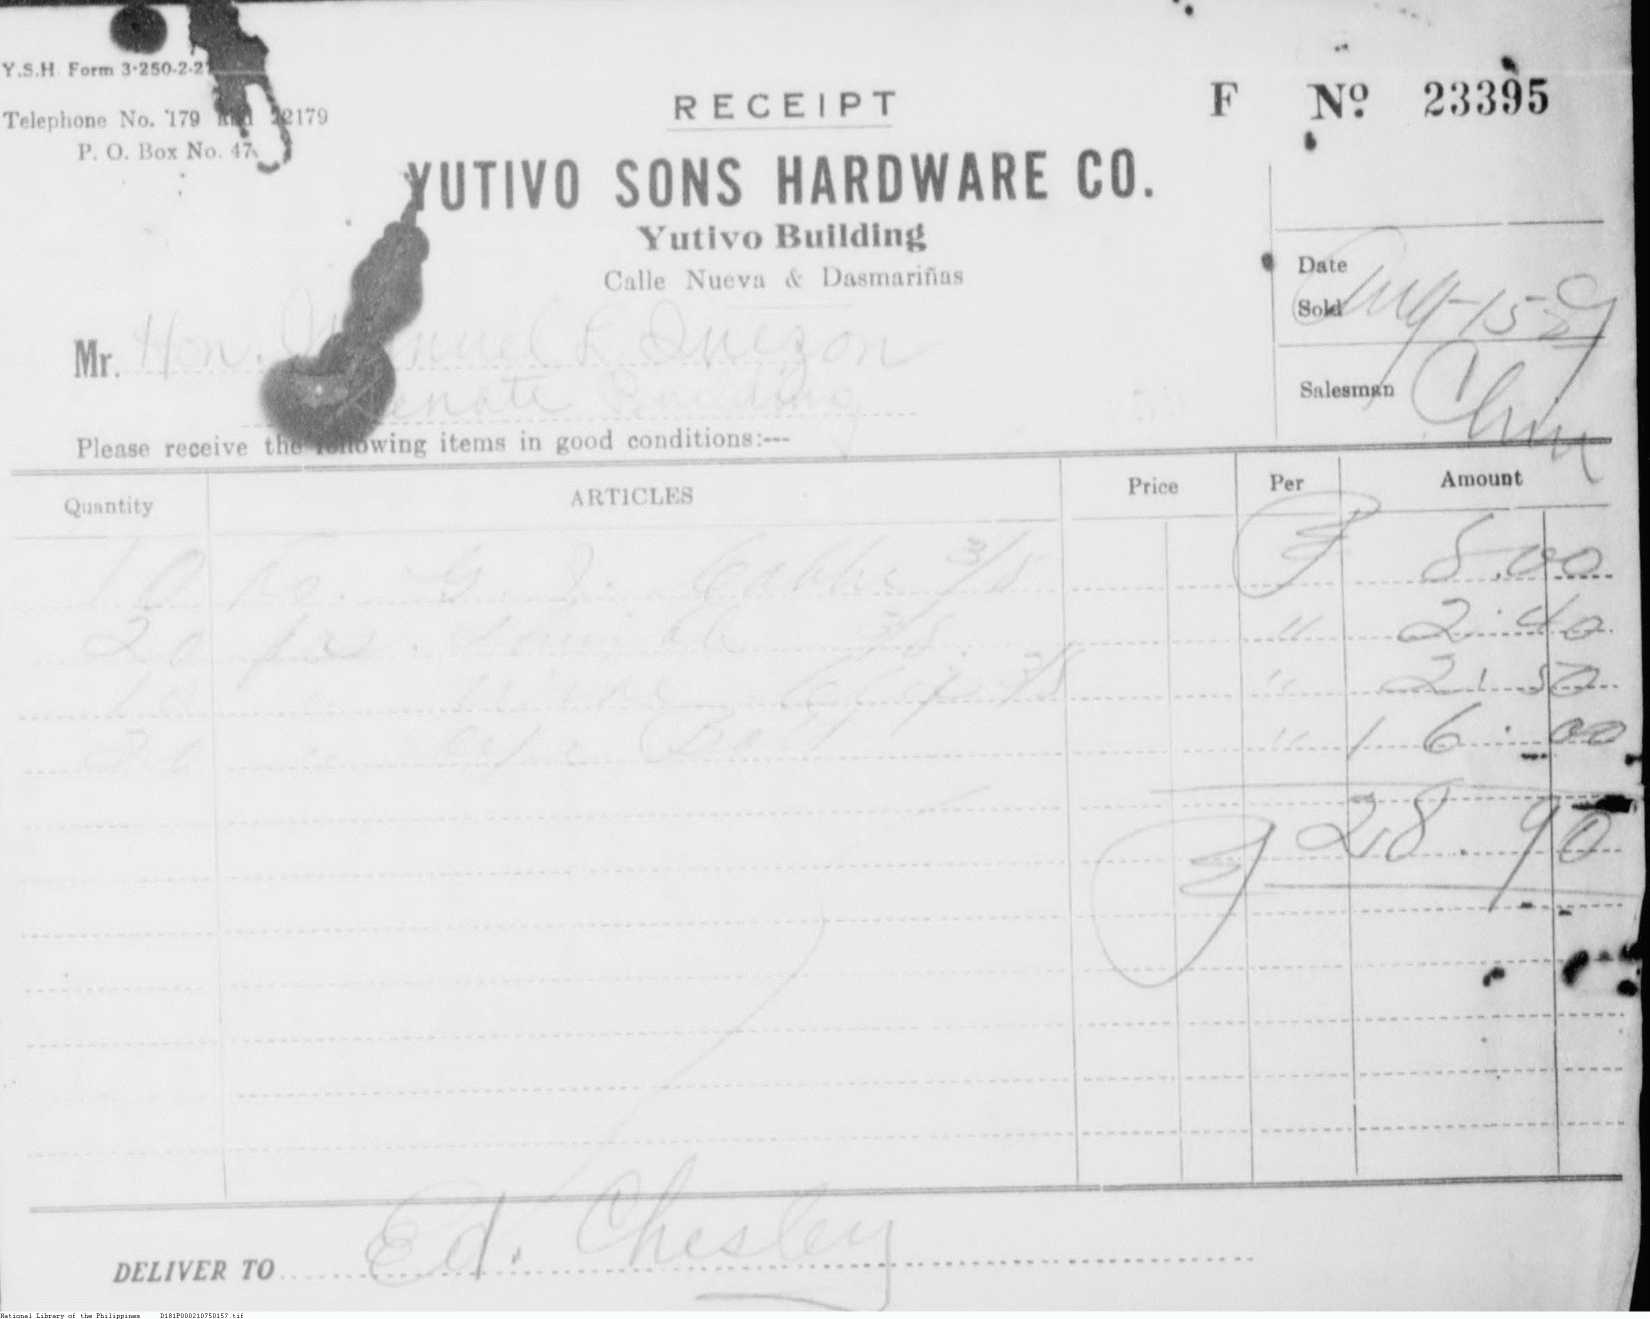 Y.S.H. Form 3-250-2-2
Telephone No. 179 and 22179
P. O. Box No. 47
RECEIPT
F No. 23395
YUTIVO SONS HARDWARE CO.
Yutivo Building
Calle Nueva & Dasmariñas
Date
Sold Aug-15-29
Mr. Hon. Manuel L. Quezon
Senate Building
Salesman
Please receive the following items in good conditions:---
Quantity ARTICLES Price Per Amount
10 G. I. 3/8 ₱ 8.00
20 3/8 " 2.40
3/8 " 2.50
" 16.00
₱ 28.90
DELIVER TO Ed. Chesley
National Library of the Philippines D181P000210750157.tif